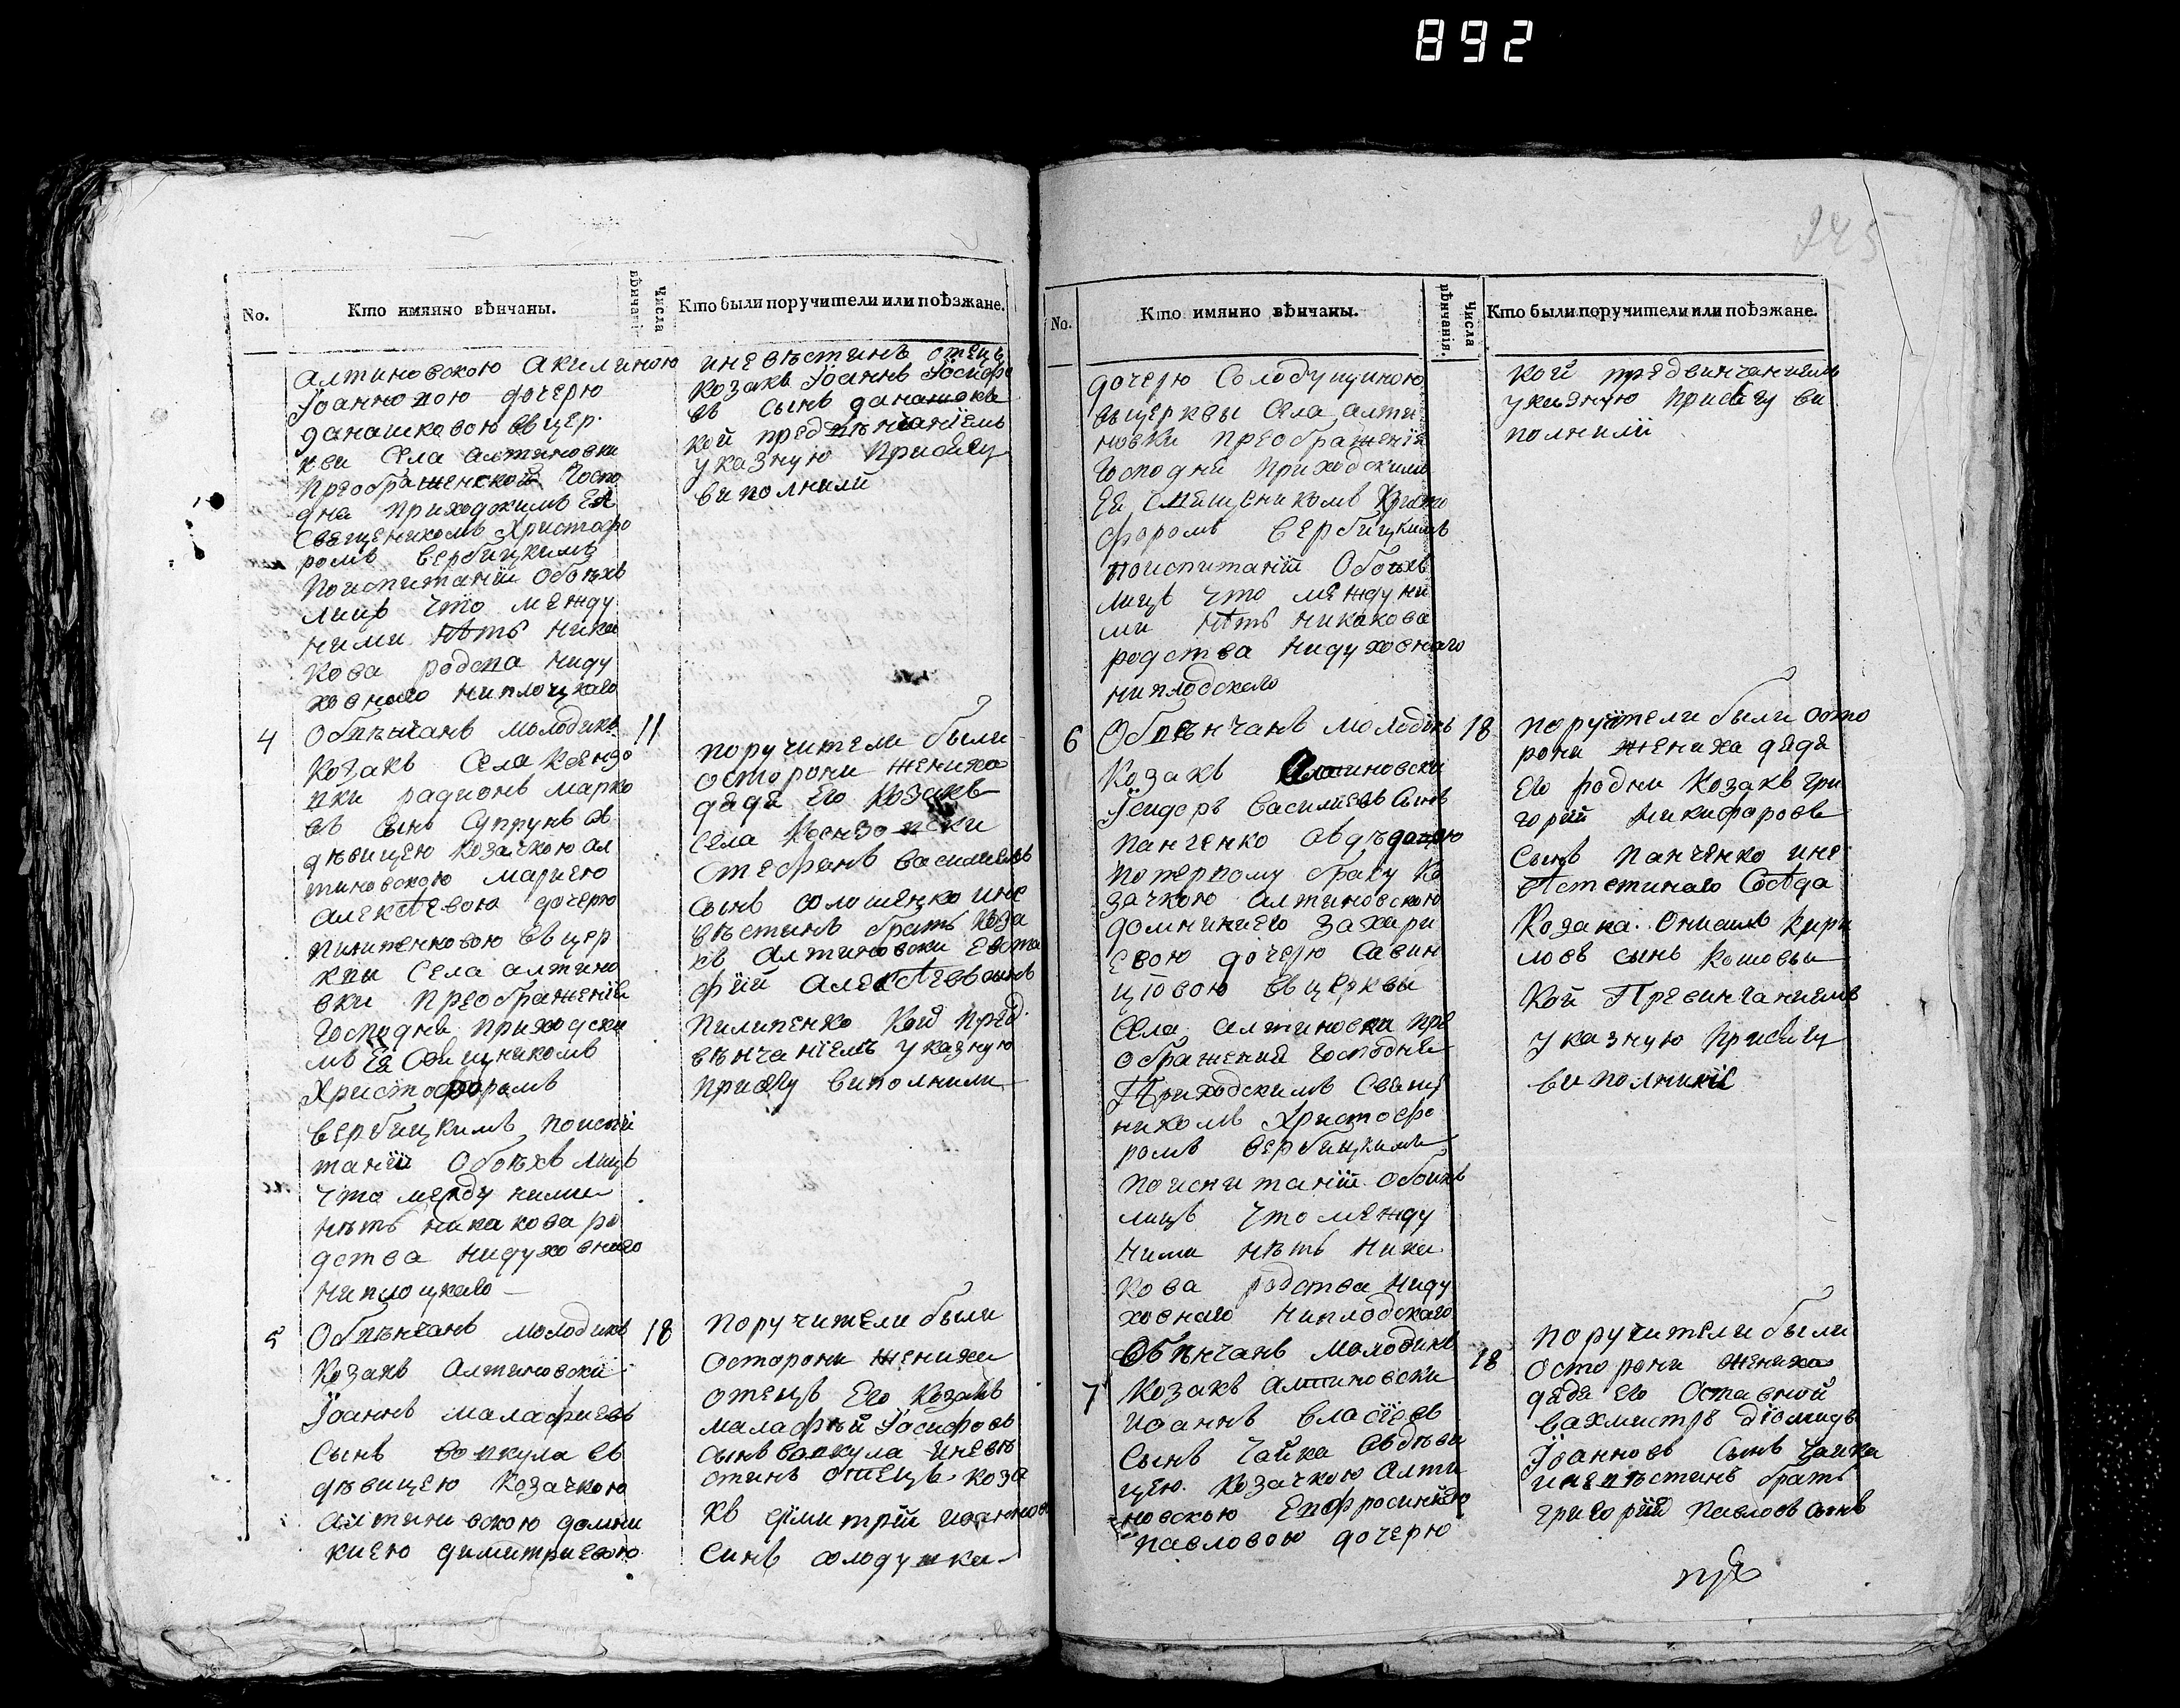 892
245
No.
Кто имянно вѣнчаны.
Числа вѣнчанія.
Кто были поручители или поѣзжане.
алтиновскою Акилиною
Іоанновою дочерю
данашковою въ цер
кви села алтиновки
преображенской Госпо
дна приходжимъ Ея
Священикомъ Христофо
ромъ вербицкимъ
по испитаніи обоихъ
лицъ что между
ними нѣтъ ника
кова родсва ни ду
ховнаго ни плоцкаго
и невѣстинъ отецъ
козакъ Іоаннъ Іосифо
въ сынъ данашокъ
кои предвѣнчаніемъ
указную присягу
виполнили
4
Обвѣнчанъ молодикъ
козакъ села Ксензо
вки радионъ марко
въ сынъ Супрунъ съ
дѣвицею козачкою ал
тиновскою мариею
алексѣевою дочерю
пилипенковою въ цер
квы села алтино
вки преображенія
Господня приходски
мъ Ея Свящникомъ
Христофоромъ
вербицкимъ по испи
таніи обоихъ лицъ
что между ними
нѣтъ никакова ро
дства ни духовнаго
ни плоцкаго
11
поручители были
осторони жениха
дядя его козакъ
села Ксензовки
Стефанъ василиевъ
сынъ солошенко и не
вѣстинъ братъ коза
къ алтиновски Евста
фій алексѣевъ сынъ
Пилипенко кои пред
вѣнчаніемъ указную
присягу виполнили
5
Обвѣнчанъ молодикъ
козакъ алтиновски
Іоаннъ малафиевъ
сынъ вовкула съ
дѣвицею козачкою
алтиновскою домни
киею димитриевою
18
поручители были
осторони жениха
отецъ его козакъ
малафѣй Іосифовъ
сынъ вовкула и невѣ
стинъ отецъ коза
къ димитрій иоаннов
синъ солодушка
No.
Кто имянно вѣнчаны.
Числа вѣнчанія.
Кто были поручители или поѣзжане.
дочерю Солодущиною
въ церквы села алти
новки преображенія
Господня приходскимъ
Ея Священикомъ Христо
форомъ вербицкимъ
по испитаніи обоихъ
лицъ что между ни
ми нѣтъ никакова
родства ни духовнаго
ни плодскаго
кои предвинчаниемъ
указную присягу ви
полнили
6
Обвѣнчанъ молодикъ
козакъ алтиновски
Ісидоръ василиевъ сынъ
панченко съ вдѣвою
по первому браку ко
зачкою алтиновскою
домникиею захари
евою дочерю савин
цовою въ церквы
села алтиновки пре
ображения Господня
Приходскимъ Священ
никомъ Христофо
ромъ вербицкимъ
по испитаніи обоихъ
лицъ что между
ними нѣтъ ника
кова родства ни ду
ховнаго ни плодскаго
18
поручители были осто
рони жениха дядя
его родни козакъ гри
горий никифоровъ
сынъ панченко и не
вѣстинаго сосѣда
козака Онисимъ кири
ловъ сынъ кошовы
кои превинчаниемъ
указную присягу
виполнили
7
Обвѣнчанъ молодикъ
козакъ алтиновски
иоаннъ власіевъ
сынъ чайка съ дѣви
цею козачкою алти
новскою Евфросиниею
павловою дочерю
18
поручители были
осторони жениха
дядя его отставной
вахмистръ діомидъ
Іоанновъ сынъ чайка
и невѣстинъ братъ
григорий павловъ сынъ